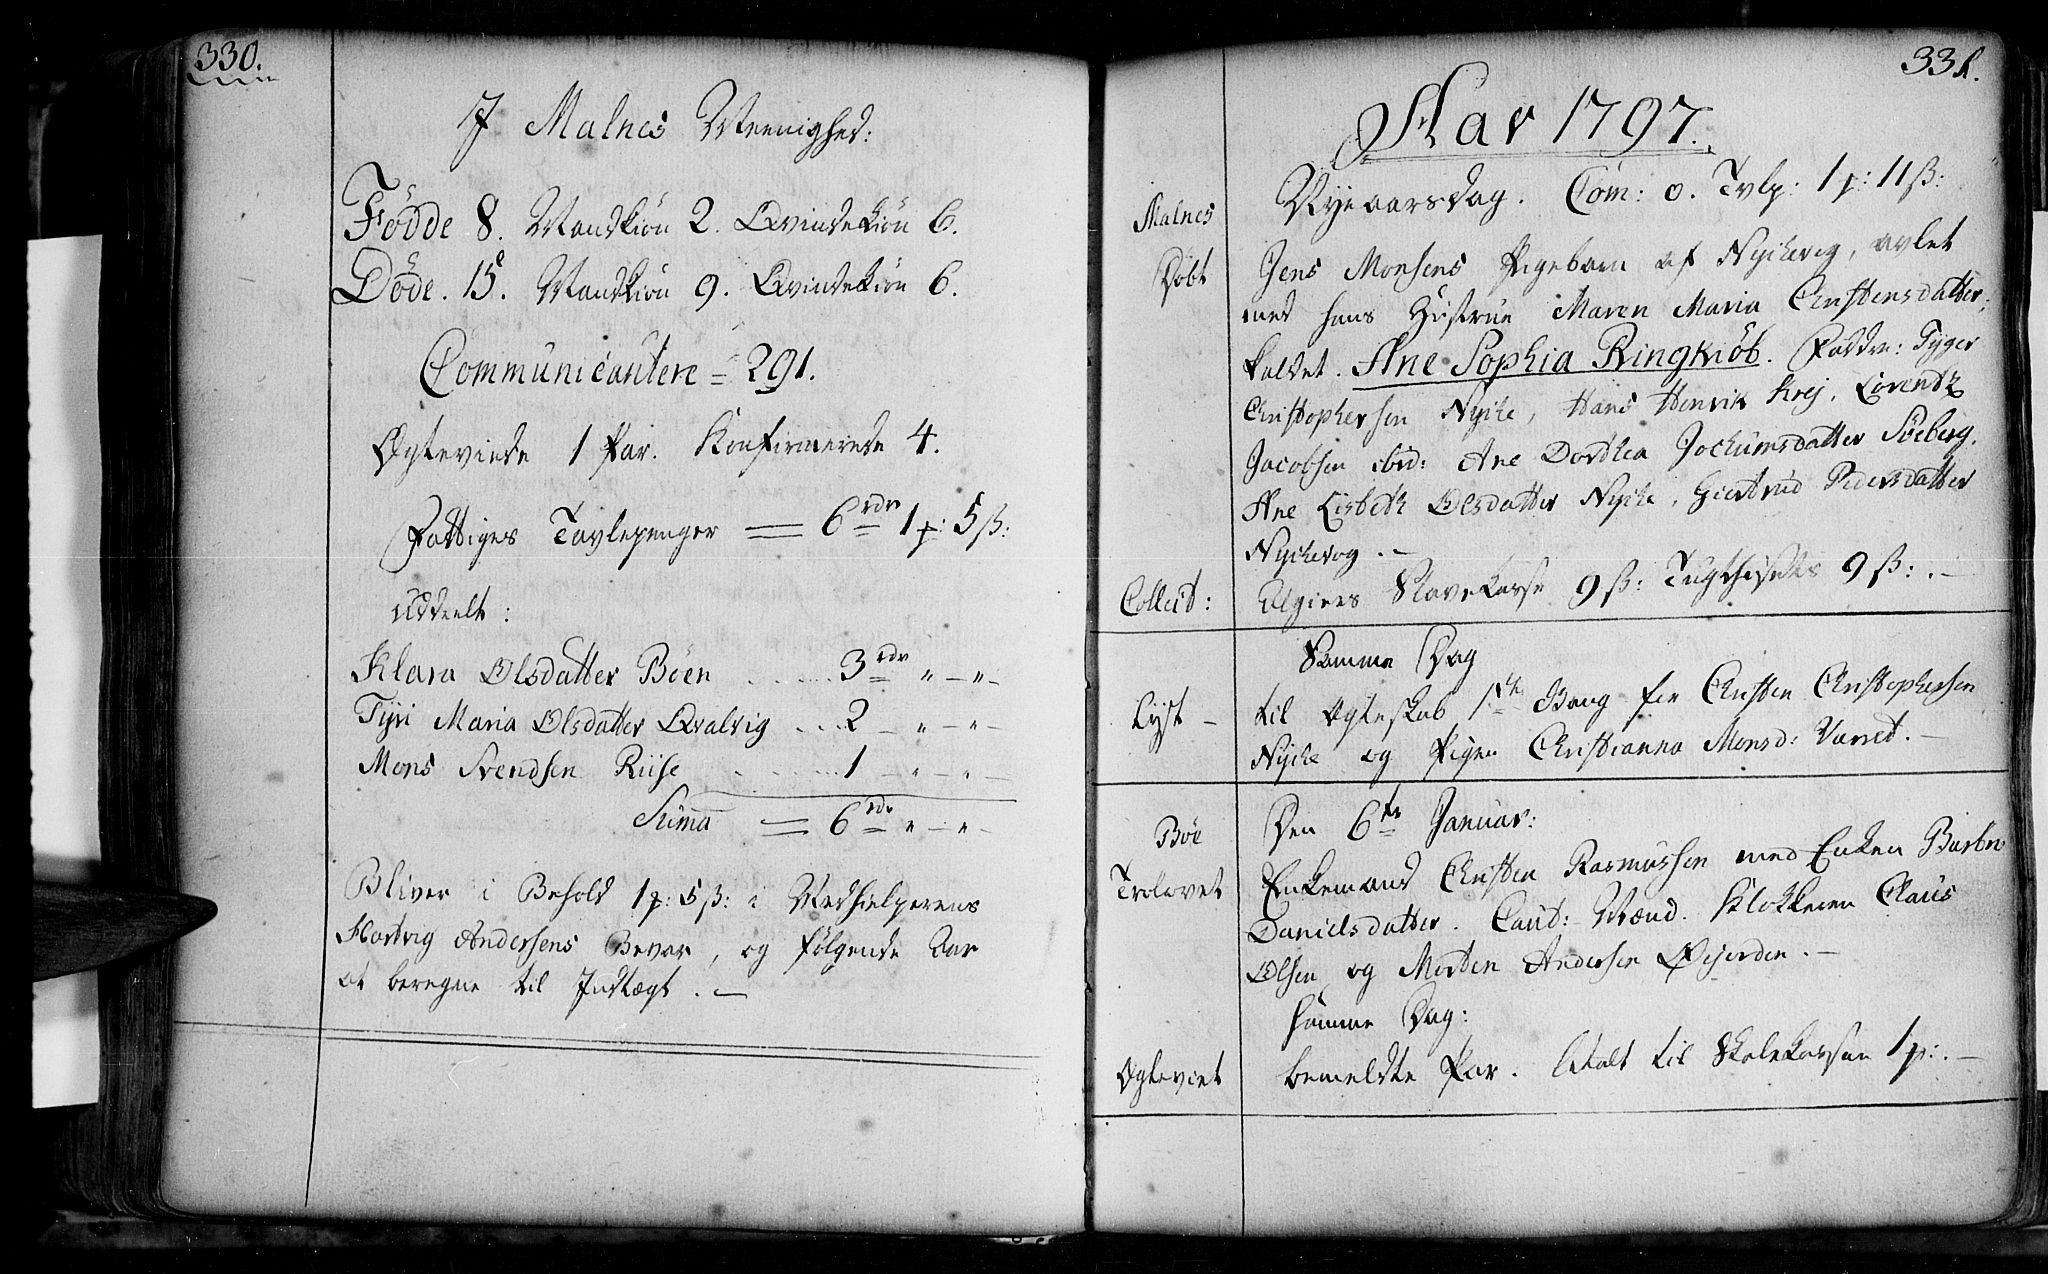 330.
I Malnes Meenighed:
Födde 8. Mandkiön 2. Qvindekiön 6.
Döde. 15. Mandkiön 9. Qvindekiön 6.
Communicantere = 291.
Ægteviede 1 Par. Konfirmerede 4.
Fattiges Tavlepenger = 6 rdr 1 p: 5 ß:
Uddeelt:
Klara Olsdatter Böen ...... 3 rdr " — " —
Tyri Maria Olsdatter Qvalvig ... 2 — " — " —
Mons Svendsen Riise ...... 1 — " — " —
Suma = 6 rdr " — " —
Bliver i Behold 1 p: 5 ß: i Medhielperens
Hartvig Andersens Bevar, og følgende Aar
at beregne til Indtægt. —
331.
Aar 1797.
Malnes
Nyeaarsdag. Com: 0. Tvlp: 1 p: 11 ß:
Døbt
Jens Monsens Pigebarn af Nychevog, avlet
med hans Hustrue Maren Maria Christensdatter,
kaldet. Ane Sophia Ringkiöb. Faddre: Tyger
Christophersen Nyche, Hans Henrik Krej, Lorentz
Jacobsen ibid: Ane Dorthea Jochumsdatter Söeberg.
Ane Lisbeth Olsdatter Nyche, Giertrud Pedersdatter
Nychevog. —
Collect:
Algiers Slavekasse 9 ß: Tugthusets 9 ß: . —
Samme Dag
Lyst —
til Ægteskab 1ste Gang for Christen Christophersen
Nyche og Pigen Christianna Monsd: Varret. —
Böe
Den 6te Januar:
Trolovet
Enkemand Christen Rasmussen med Enken Barbro
Danielsdatter. Caut: Mænd. Klokkeren Claus
Olsen og Morten Andersen Øejorden. —
samme Dag:
Ægteviet
bemeldte Par. betalt til Skolekassen 1 p: . —